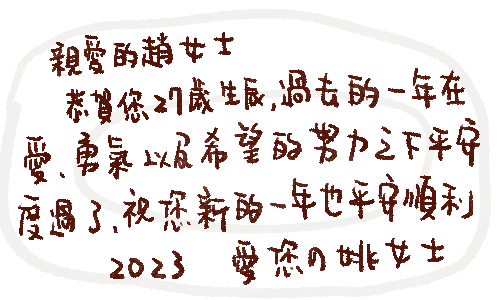 親愛的趙女士
恭賀您27歲生辰,過去的一年在
愛、勇氣以及希望的努力之下平安
度過了,祝您新的一年也平安順利
2023 愛您の姚女士